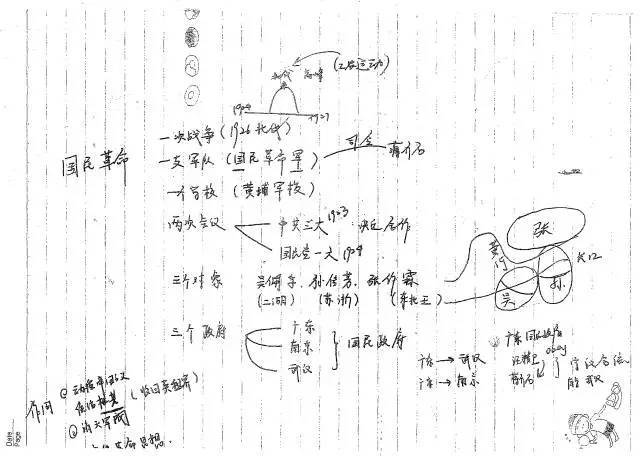 (工农运动)
北伐 高峰
1924
1927
国民革命
一次战争(1926北伐)
一支军队(国民革命军) 司令 蒋介石
一个学校(黄埔军校)
两次会议
中共三大1923 决定合作
国民党一大1924
三个对象 吴佩孚、孙传芳、张作霖
(二湖) (苏浙) (东北三)
张
黄河
长江
吴
孙
三个政府
广东
南京
武汉
国民政府
广东→武汉
广东→南京
广东国民政府
汪精卫
蒋介石
宁汉合流
作用
(收回英租界)
②消灭军阀
革命思想.
Date
Page